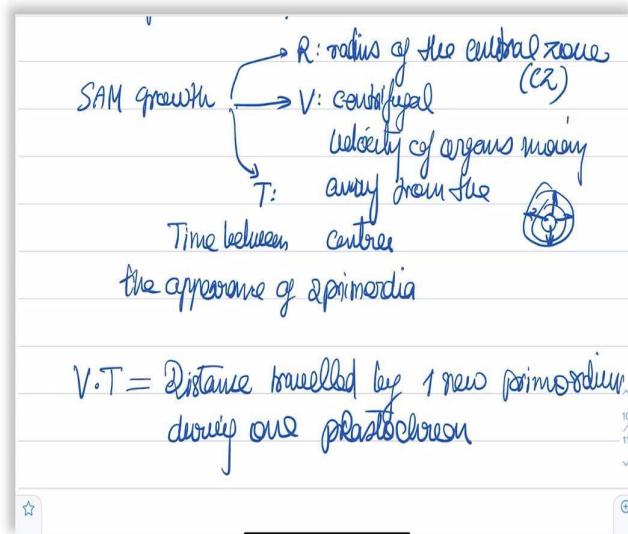 R: radius of the central zone
(CZ)
SAM growth
V: centrifugal
velocity of organs moving
T: away from the
Time between centre
the appearance of 2 primordia
V·T = Distance travelled by 1 new primordium
during one plastochron